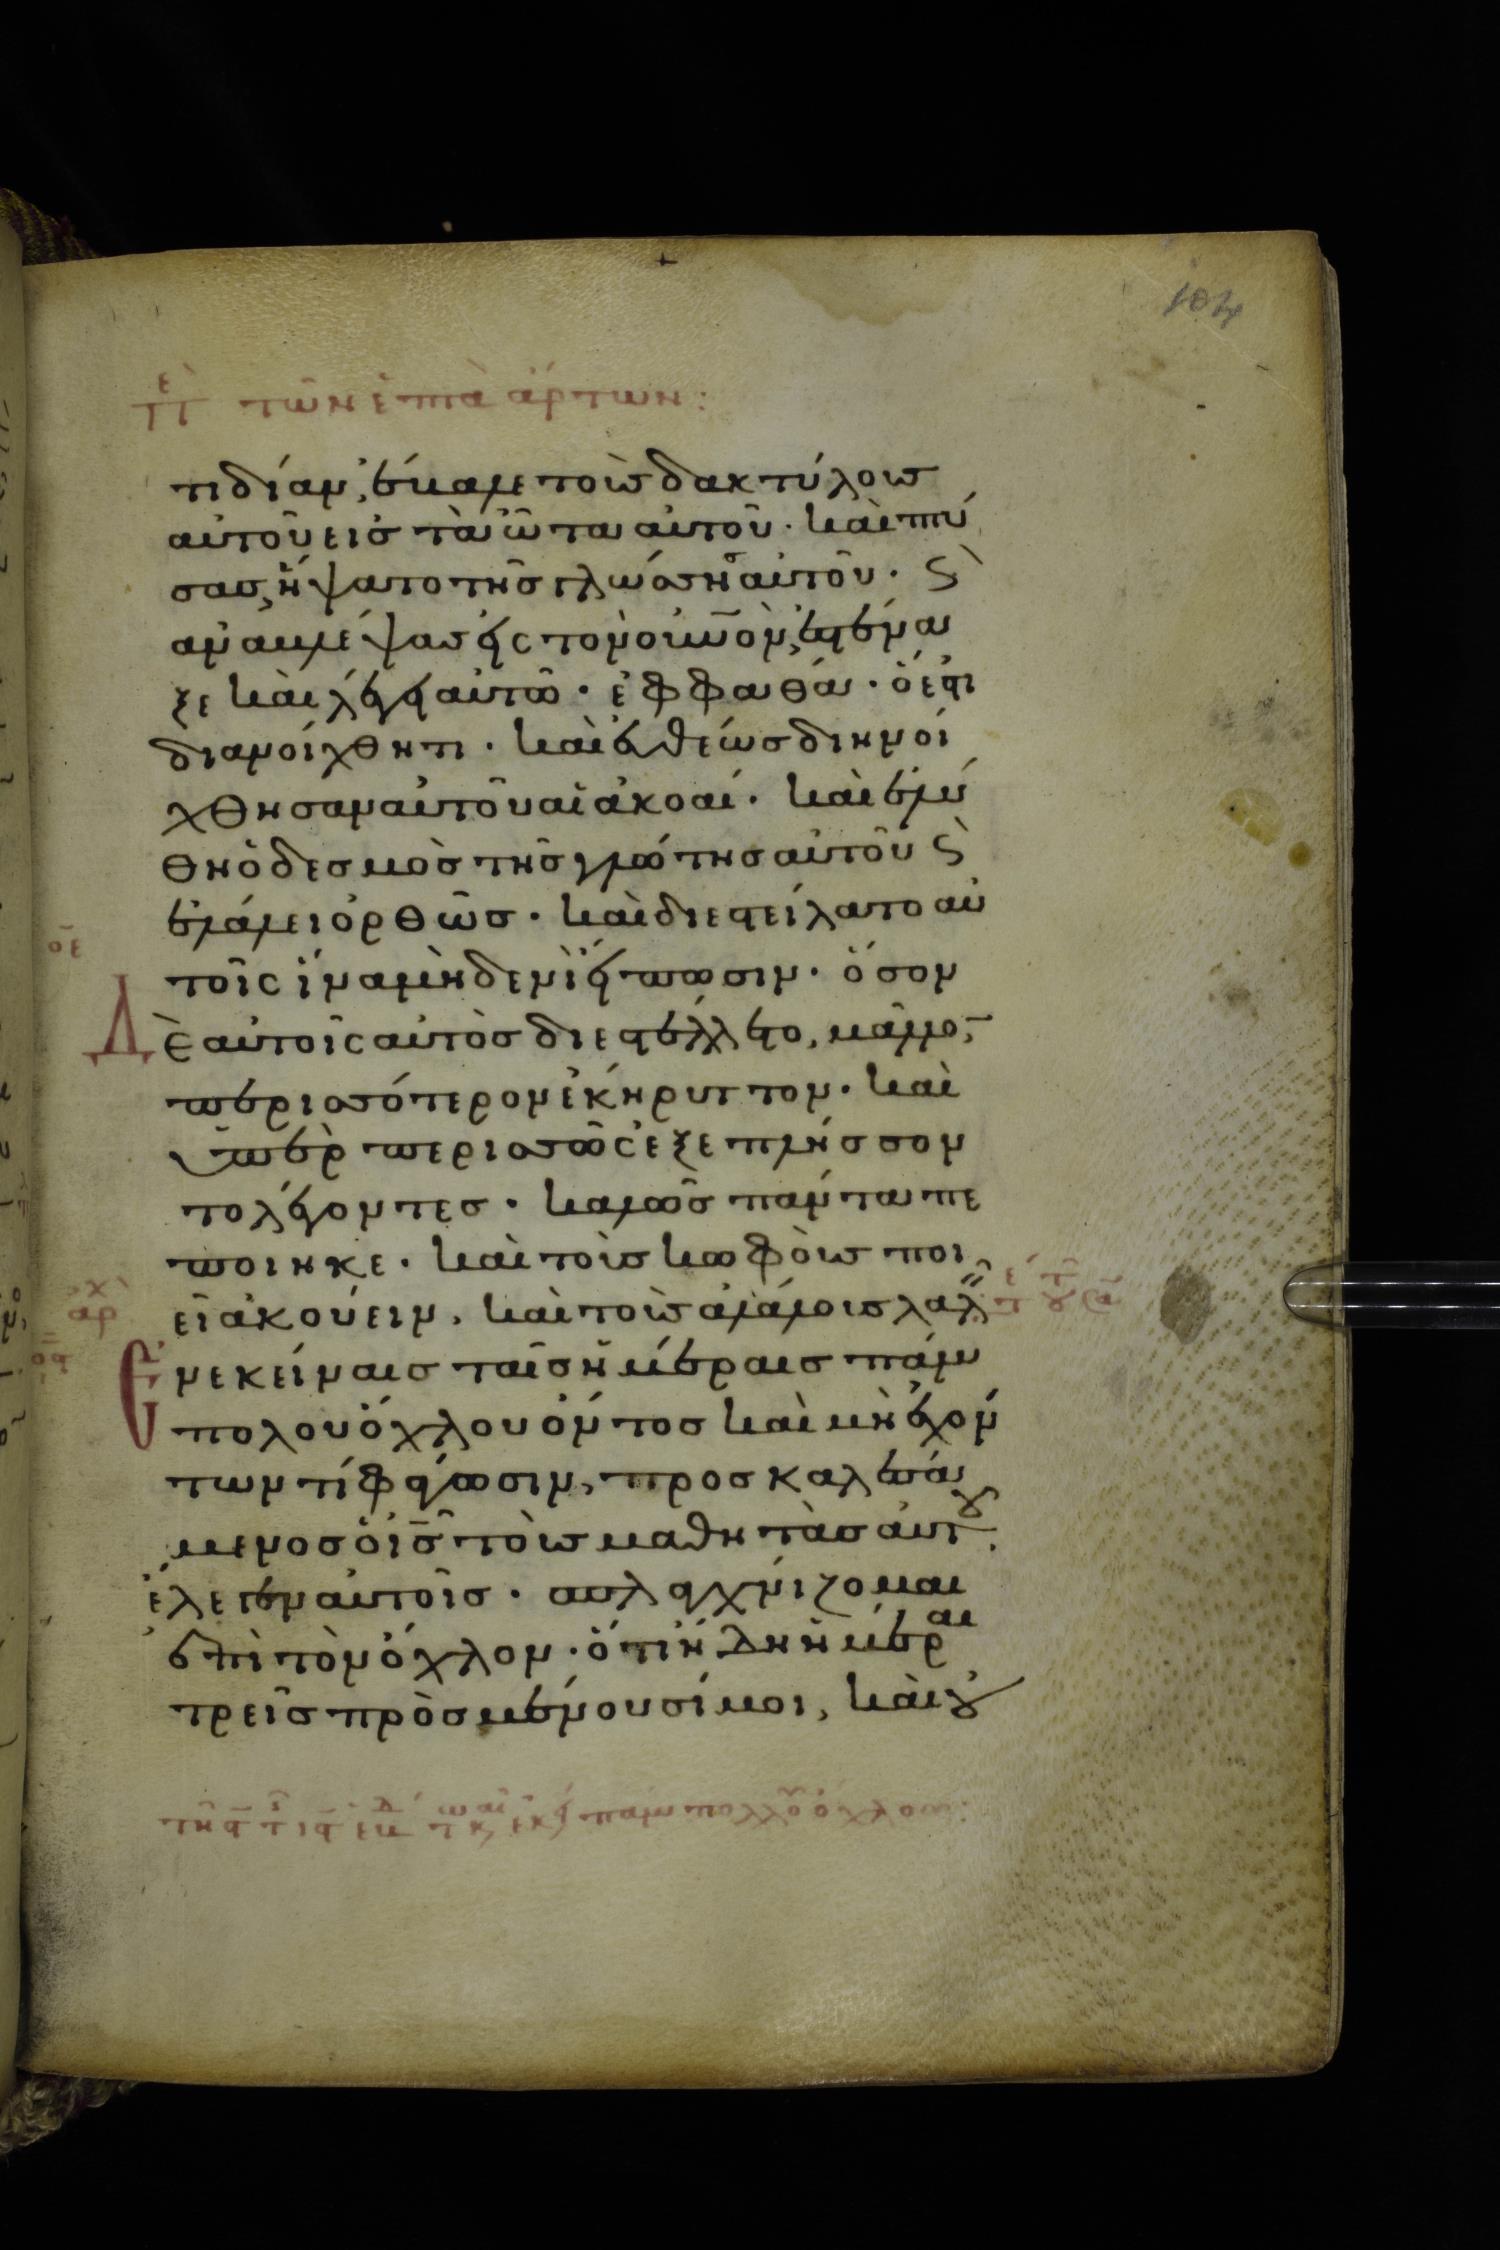 104
περὶ τῶν ἑπτὰ ἄρτων:
τιδίαν, ἔβαλε τοὺς δακτύλους
αὐτοῦ εἰς τὰ ὦτα αὐτοῦ. καὶ πτύ
σας, ἥψατο τῆς γλώσσης αὐτοῦ. ϛ̀
ἀναβλέψας εἰς τὸν οὐνὸν, ἐστένα
ξε καὶ λέγει αὐτῶ. ἐφφαθά. ὅ ἐστι
διανοίχθητι. καὶ εὐθέως διηνοί
χθησαν αὐτοῦ αἱ ἀκοαί. καὶ ἐλύ
θη ὁ δεσμὸς τῆς γλώττης αὐτοῦ ϛ̀
ἐλάλει ὀρθῶς. καὶ διεστείλατο αὐ
τοῖς ἵνα μηδενὶ εἴπωσιν. ὅσον
Δὲ αὐτοῖς αὐτὸς διεστέλλετο, μᾶλλον
περισσότερον ἐκήρυττον. καὶ
ὑπὲρ περισσῶς ἐξεπλήσσον
το λέγοντες. καλῶς πάντα πε
ποίηκε. καὶ τοὺς κωφοὺς ποι
εῖ ἀκούειν, καὶ τοὺς ἀλάλους λαλεῖν
Ἐν ἐκείναις ταῖς ἡμέραις πάμ
πολου ὄχλου ὄντος καὶ μὴ ἐχόν
των τί φάγωσιν, προσκαλεσά
μενος ὁ ις τοὺς μαθητὰς αὐτοῦ.
ἔλεγεν αὐτοῖς. σπλαγχνίζομαι
ἐπὶ τὸν ὄχλον. ὅτι ἤδη ἡμέραι
τρεῖς προσμένουσί μοι, καὶ οὐ